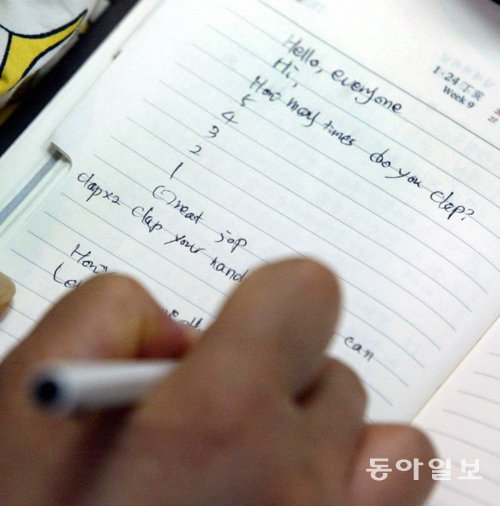 1·24 丁亥
Week 9
Hello, everyone
Hi,
How many times do you clap?
5
4
3
2
1
Great jop
clap×2 clap your hand
can
동아일보